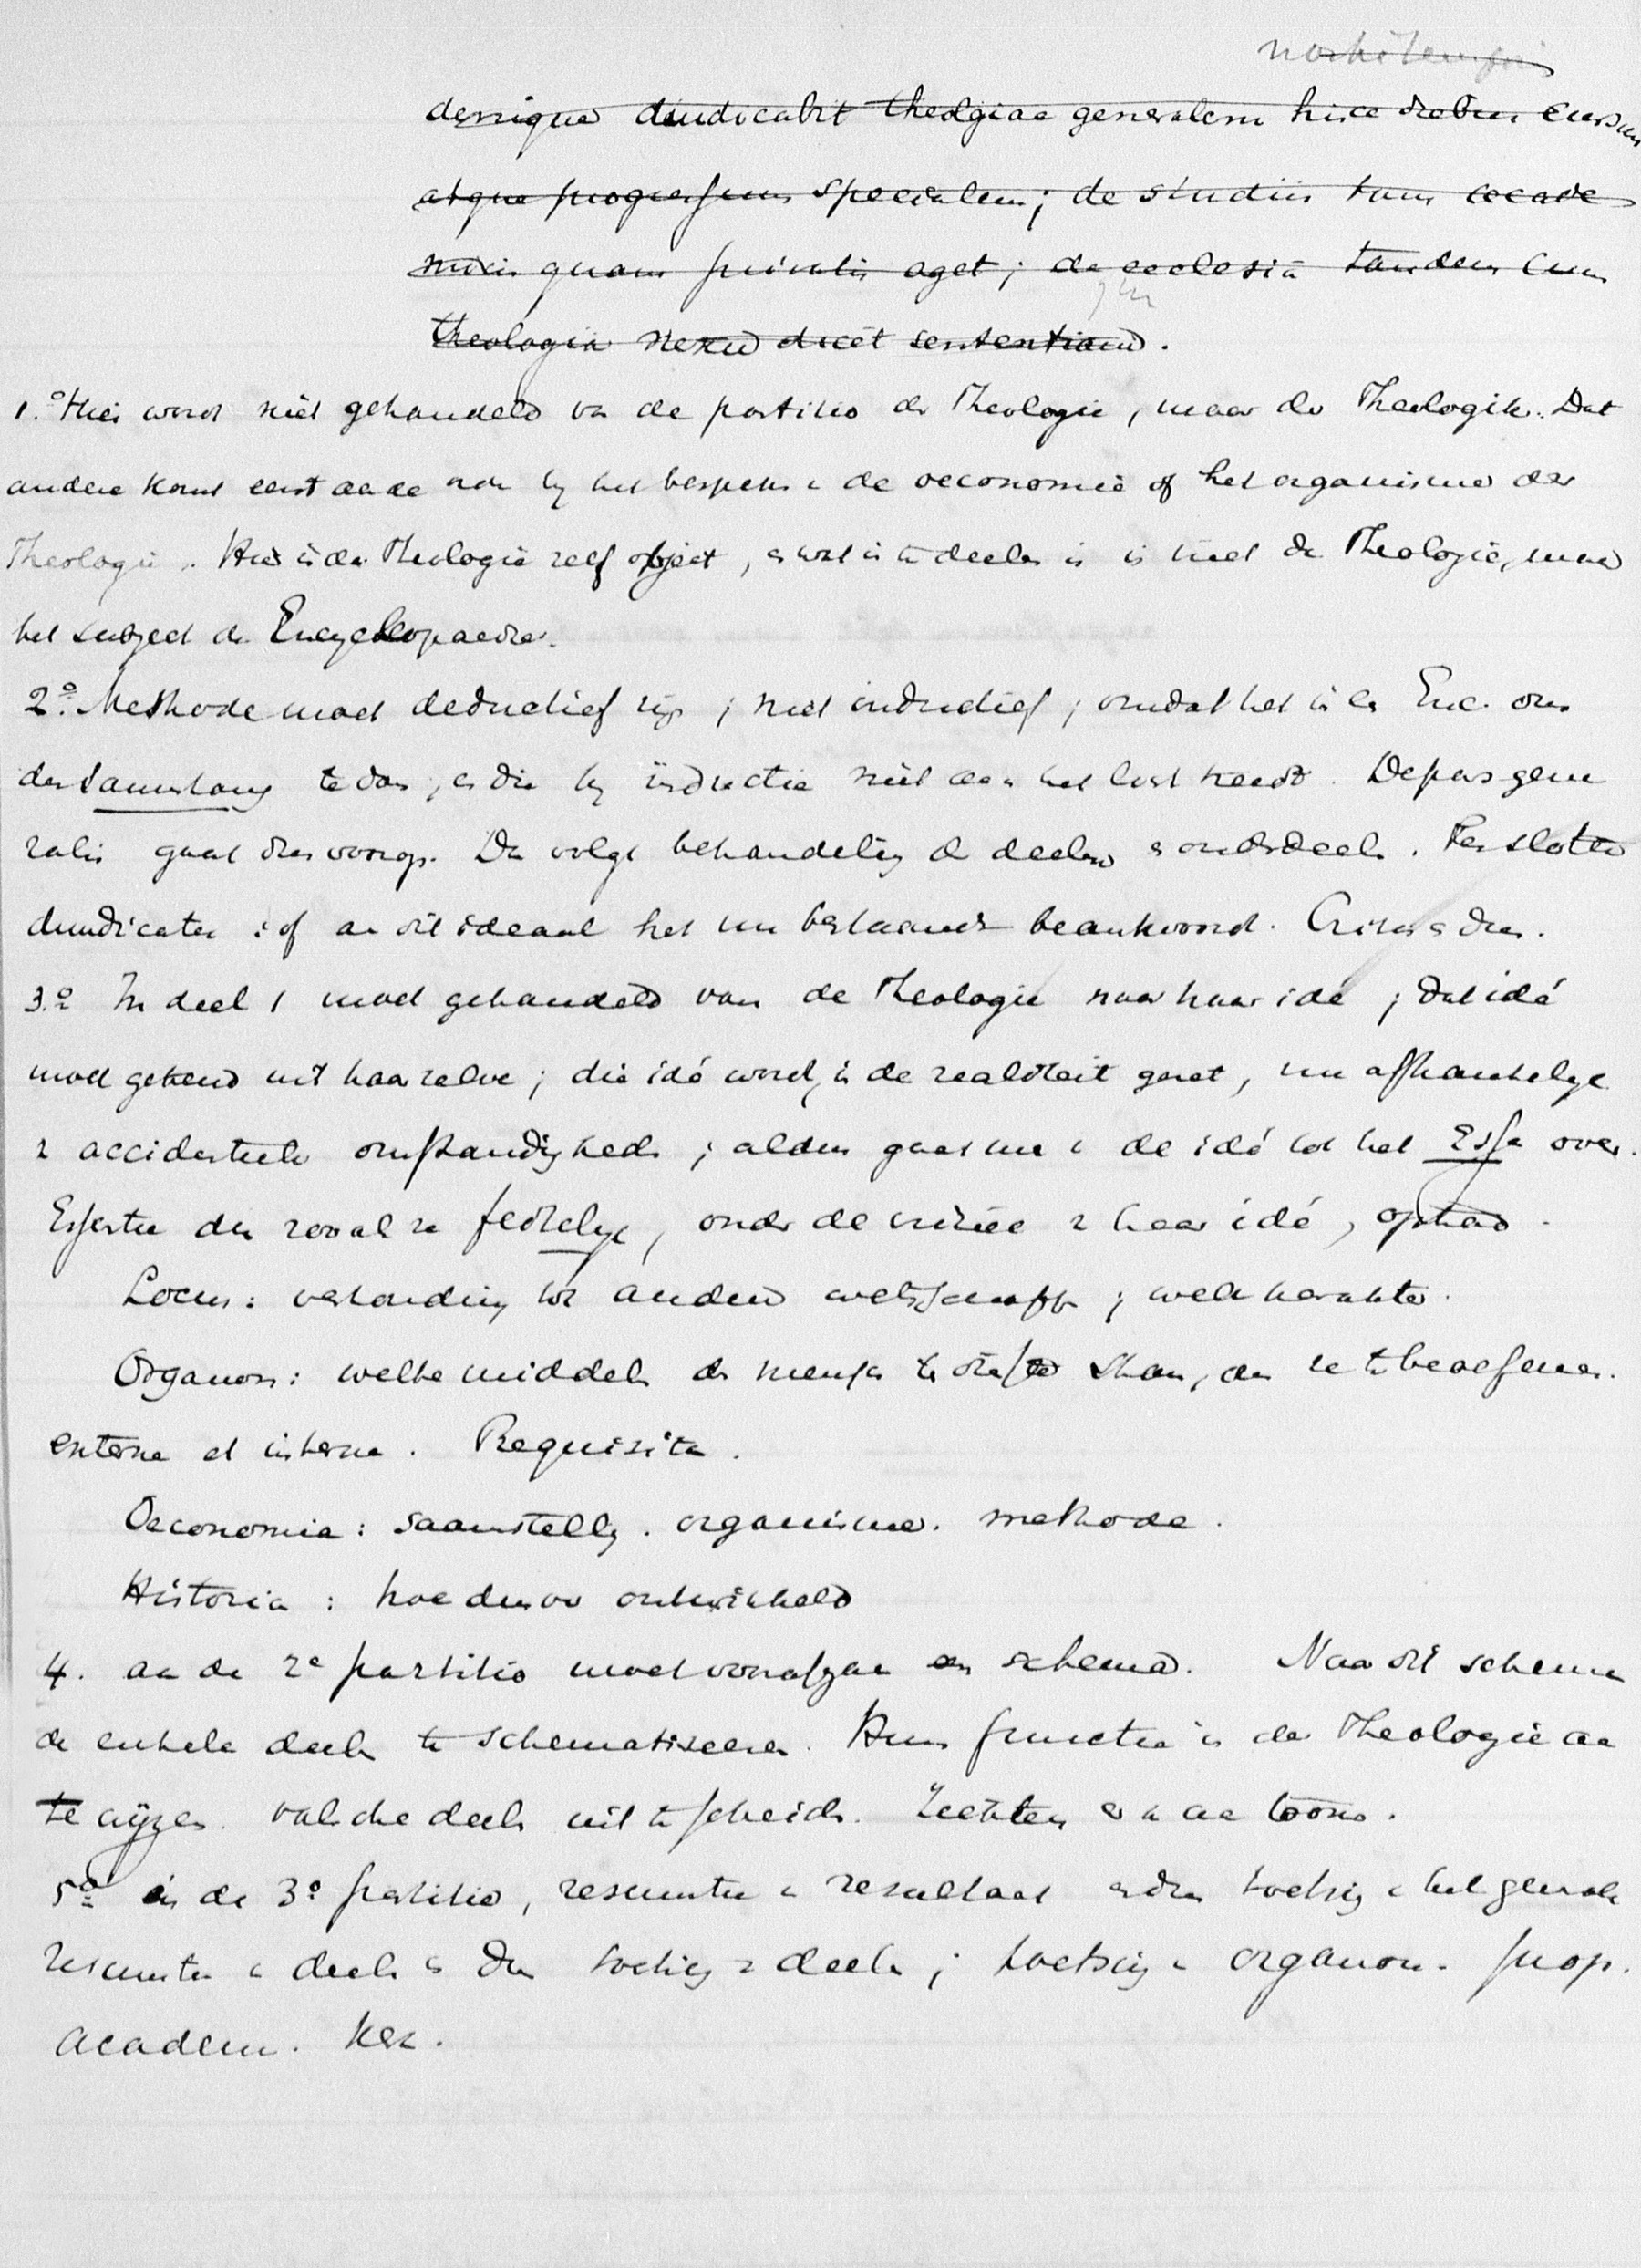 denique diudicabit theolgiae generalem hisce diebus cursum
atque progressum specialem; de studiis tum acade
micis quam privatis aget; de ecclesia tandem cum
theologia nexu dicet sententiam.
1.º Hier word niet gehandeld va de partitio der Theologie, maar der Theologik. Dat
andere komt eerst aa de orde by het bespreken de oeconomie of het organisme der
Theologie. Hier is de Theologie zelf object, en wat in te deelen is is niet de Theologie, maar
het subject der Encyclopaedie.
2º. Methode moet deductief zijn; niet inductief; omdat het in de Enc. om
den samenhang te doen, en die by inductie niet aan het licht treedt. De pars gene
ralis gaat dus voorop. Dan volgt behandeling der deelen en onderdeelen. Ten slotte
diudicatie: of aan dit ideaal het nu bestaande beantwoord. Crisis dus.
3.º In deel 1 moet gehandeld van de Theologie naar haar idé; dat idé
moet gekend uit haarzelve; die idé word, in de realiteit gezet, nu afhankelyk
accidenteele omstandigheden; aldus gaat men de idé tot het Esse over.
Essentie der zooals ze feitelyk, onder de haar idé, optrad.
Locus: verhouding tot andere wetensschappen; welk karakter.
Organon: welke middelen den mensch te dienste staan, om ze te beoefenen.
externa et interna. Requisita.
Oeconomia: saamstelling. organisme. methode.
Historia: hoe dusver ontwikkeld
4. aa de 2e partitio moet voorafgaan een schema. Naar dit schema
de enkele deelen te schematiseeren. Hun functie in de Theologie aa
te wijzen. valsche deelen uit te scheiden. aa te toonen.
5º in de 3e partitio, resumtie resultaat en dan toetsing het geheele
resumtie deelen en dan toetsing deelen; toetsing organon. prop.
academ. Kerk.